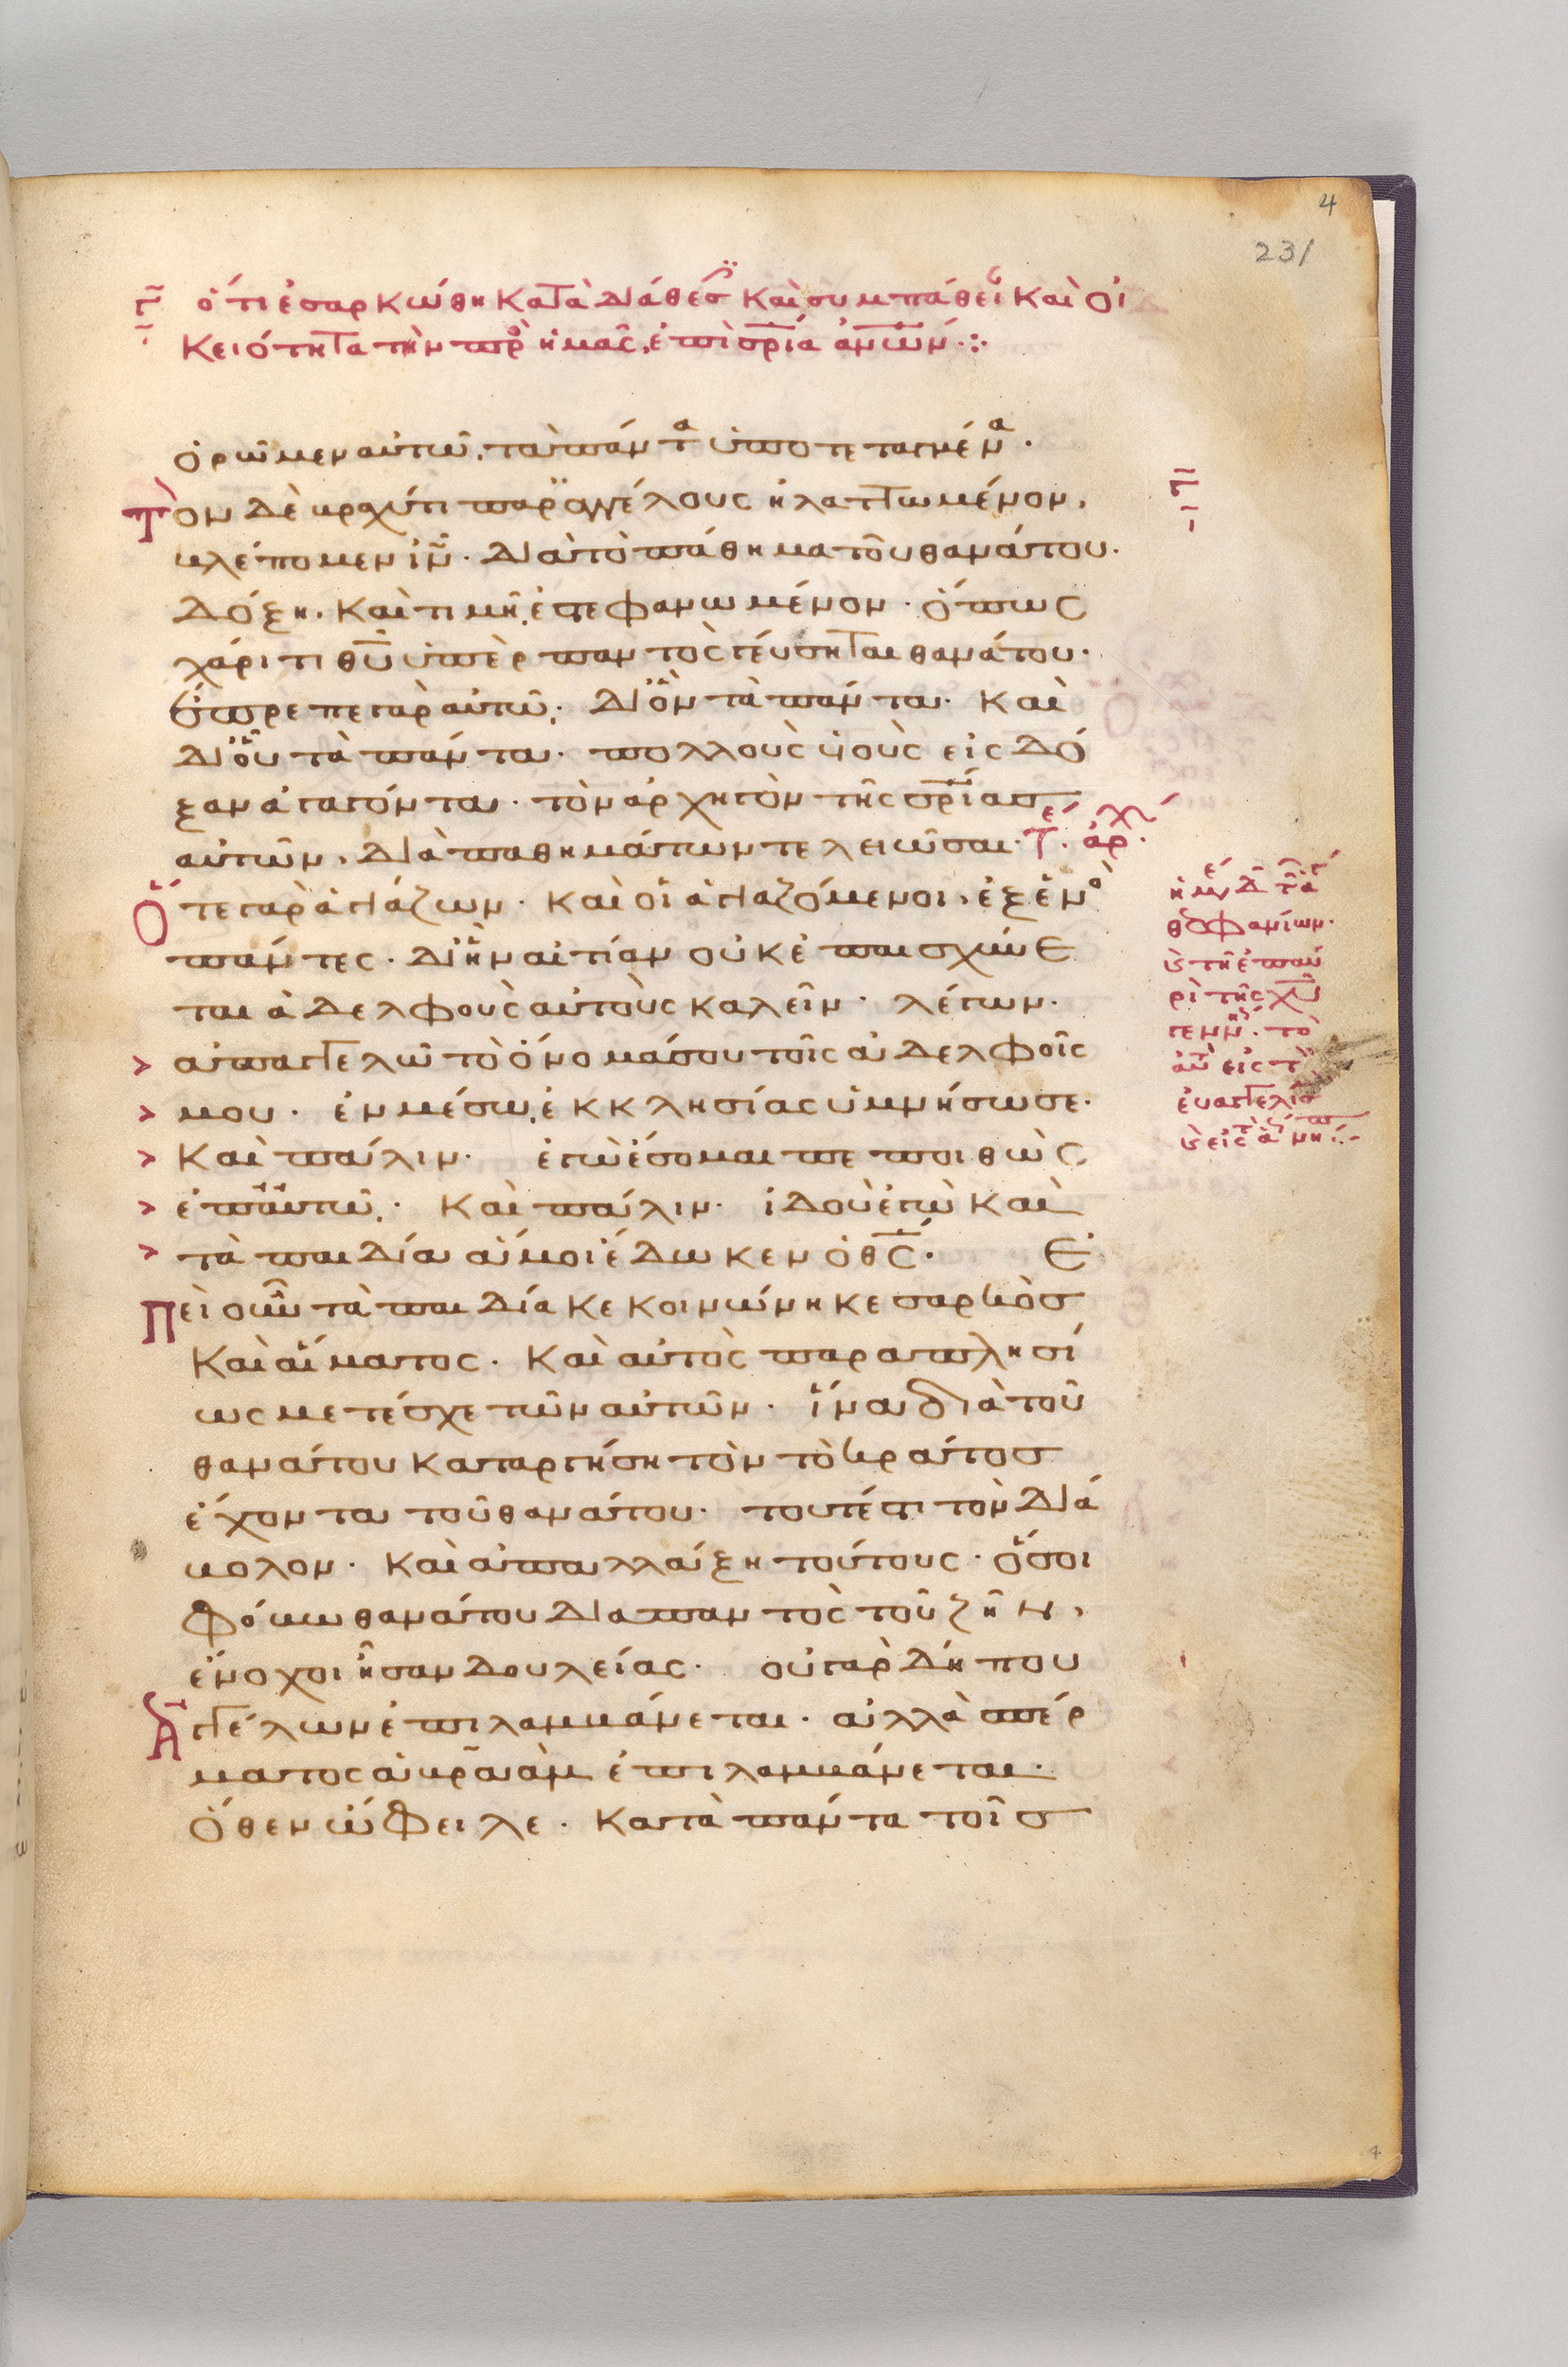 4
231
ὅτι ἐσαρκώθη κατὰ διάθεσ καὶ συμπάθει καὶ οἰ
κειότητα τὴν πρ ἡμᾶς, ἐπὶ σρία ἀνων·:·
ὁρῶμεν αὐτῶ, τὰ πάντα ὑποτεταγμένα·
Τὸν δὲ βραχύτι παρ ἀγγέλους ἠλαττωμένον,
βλέπομεν ιν· διὰ τὸ πάθημα τοῦ θανάτου·
δόξη, καὶ τιμῆ, ἐστεφανωμένον· ὅπως
χάριτι θυ ὑπὲρ παντὸς γεύσηται θανάτου·
ἔπρεπε γὰρ αὐτῶ, δι ὃν τὰ πάντα· καὶ
δι οὗ τὰ πάντα· πολλοὺς υἱοὺς εἰς δό
ξαν ἀγαγόντα· τὸν ἀρχηγὸν τῆς σρίας
αὐτῶν, διὰ παθημάτων τελειῶσαι· τ. ἀρχ.
Ὅ τε γὰρ ἁγιάζων· καὶ οἱ ἁγιαζόμενοι, ἐξ ἑνὸ
πάντες· δι ἣν αἰτίαν οὐκ ἐπαισχύνε
ται ἀδελφοὺς αὐτοὺς καλεῖν· λέγων·
> ἀπαγγελῶ τὸ ὄνομά σου τοῖς ἀδελφοῖς
> μου· ἐν μέσω, ἐκκλησίας ὑμνήσω σε·
> καὶ πάλιν· ἐγὼ ἔσομαι πεποιθὼς
> ἐπ αὐτῶ,· καὶ πάλιν· ἰδοὺ ἐγὼ καὶ
> τὰ παιδία ἅ μοι ἔδωκεν ὁ θς· ε
Πεὶ οὖν τὰ παιδία κεκοινώνηκε σαρκὸς
καὶ αἵματος· καὶ αὐτὸς παραπλησί
ως μετέσχε τῶν αὐτῶν· ἵνα διὰ τοῦ
θανάτου καταργήση τὸν τὸ κράτος
ἔχοντα τοῦ θανάτου· τουτέστι τὸν διά
βολον· καὶ ἀπαλλάξη τούτους· ὅσοι
φόβω θανάτου διαπαντὸς τοῦ ζῆν,
ἔνοχοι ἦσαν δουλείας· οὐ γὰρ δήπου
Ἀγγέλων ἐπιλαμβάνεται· ἀλλὰ σπέρ
ματος ἀβραὰμ ἐπιλαμβάνεται·
ὅθεν ὤφειλε· κατὰ πάντα τοῖς
θεοφανίων·
εἰς τ
εὐαγγελισ
4